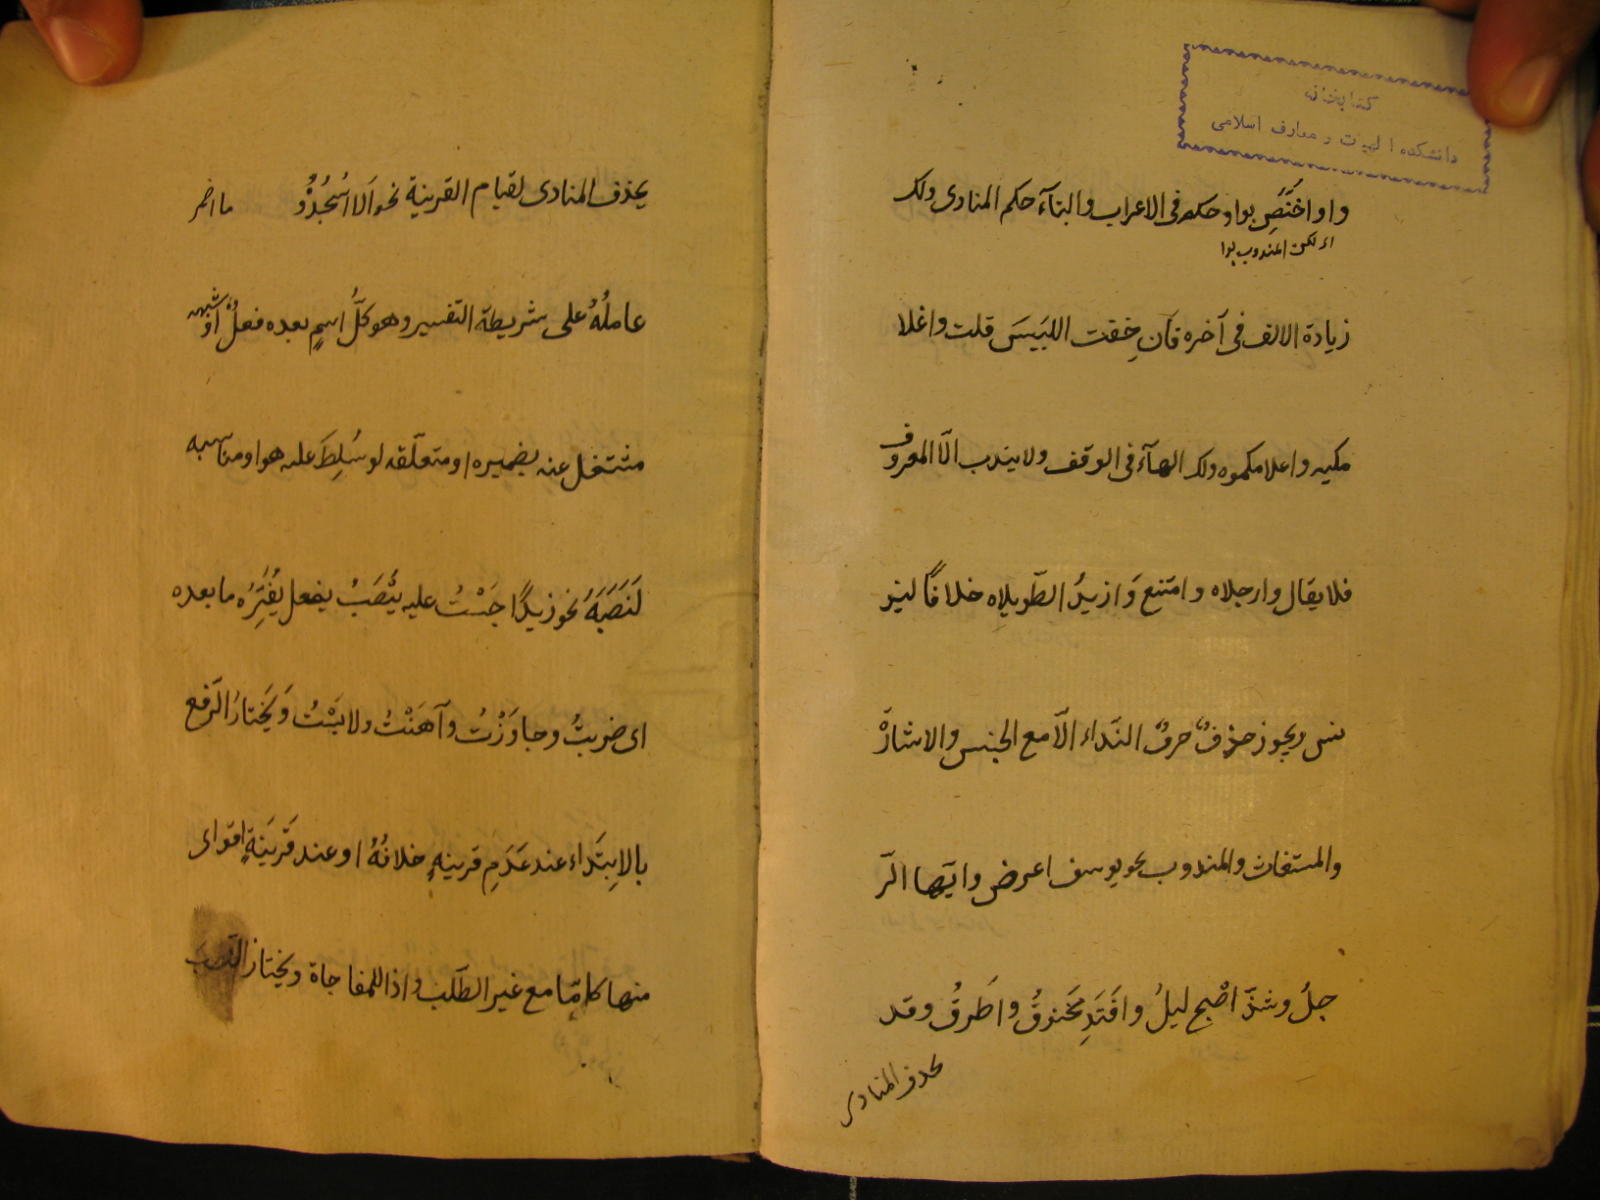 كتابخانه
دانشكده الهيات و معارف اسلامى
و او اختُصَّ بوا و حكمه فى الاعراب والبنآء حكم المنادى ولك
اى لكن المندوب بوا
زيادة الالف فى آخره فآن خفت اللبسَ قلت واغلا
مكيه واغلامكموه ولك الهآء فى الوقف ولا يندب الّا المعروف
فلا يقال وارجلاه و امتنع وَازيدُ الطّويلاه خلافًا ليو
نس ويجوز حذفُ حرفُ النّداء الّا مع الجنس والاشارة
والمستغاث والمندوب نحو يوسف اعرض وايّها الرّ
جلُ وشذّ اصْبح ليلُ وافتَدِ مخنوقُ واَطرقُ وقد
يحذف المنادى
يحذف المنادى لقيام القرينة نحو اَلا اسْجُدُوْا ما اضمر
عاملُهُ على شريطة التّفسير وهو كلُّ اسمٍ بعده فعلٌ اَوْ شبهه
مشتغل عنه بضميره او متعلّقه لو سُلِّطَ عليه هو او مناسبه
لَنَصَبَهُ نحو زيدًا حَبَسْتُ عليه يُنْصَبُ بفعل يُفَسِّرُه ما بعده
اى ضربتُ وجاوَزْتُ وآهَنْتُ ولابَسْتُ وَيُختارُ الرّفع
بالاِبتَداء عند عَدَمِ قرينهٍ خلافهُ او عند قَرينَةٍ اقواى
منها كامّا مع غير الطّلب واذا للمفاجاة ويختار النّصب